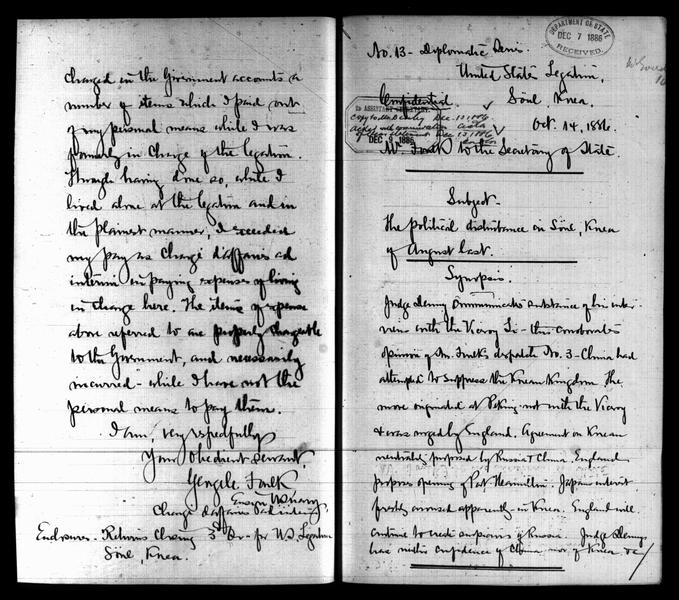 charged in the Government accounts a
number of items which I paid out
of my personal means while I was
formerly in charge of the legation.
Through having done so, while I
lived alone at the legation and in
the plainest manner, I exceeded
my pay as Chargé d'affaires ad
interim in paying expenses of living
in charge here. The items of expense
above referred to are properly chargeable
to the Government, and necessarily
incurred - while I have not the
personal means to pay them.
I am, very respectfully
Your obedient servant,
George C. Foulk
Ensign U.S. Navy
Chargé d'affaires ad interim
Enclosures - Returns closing 3rd Qr - for U.S. Legation
Söul, Korea.
No. 13 - Diplomatic Series.
DEPARTMENT OF STATE
DEC 7 1886
RECEIVED.
United States Legation,
Confidential
Söul, Korea.
Oct. 14, 1886.
ASSISTANT SECRETARY
Copy to Mr Denby Dec.
DEC 9 1886
Mr. Foulk to the Secretary of State
Subject -
The political disturbance in Söul, Korea
of August last.
Synopsis.
Judge Denny communicates substance of his inter-
view with the Viceroy Li - this corroborates
opinion of Mr. Foulk's dispatch No. 3 - China had
attempted to suppress the Korean Kingdom. The
move originated at Peking - not with the Viceroy
& was urged by England. Agreement on Korean
neutrality proposed by Russia & China. England
proposes opening of Port Hamilton. Japan's interest
freshly aroused apparently - in Korea. England will
continue to credit suspicions of Russia. Judge Denny
has neither confidence of China nor of Korea &c